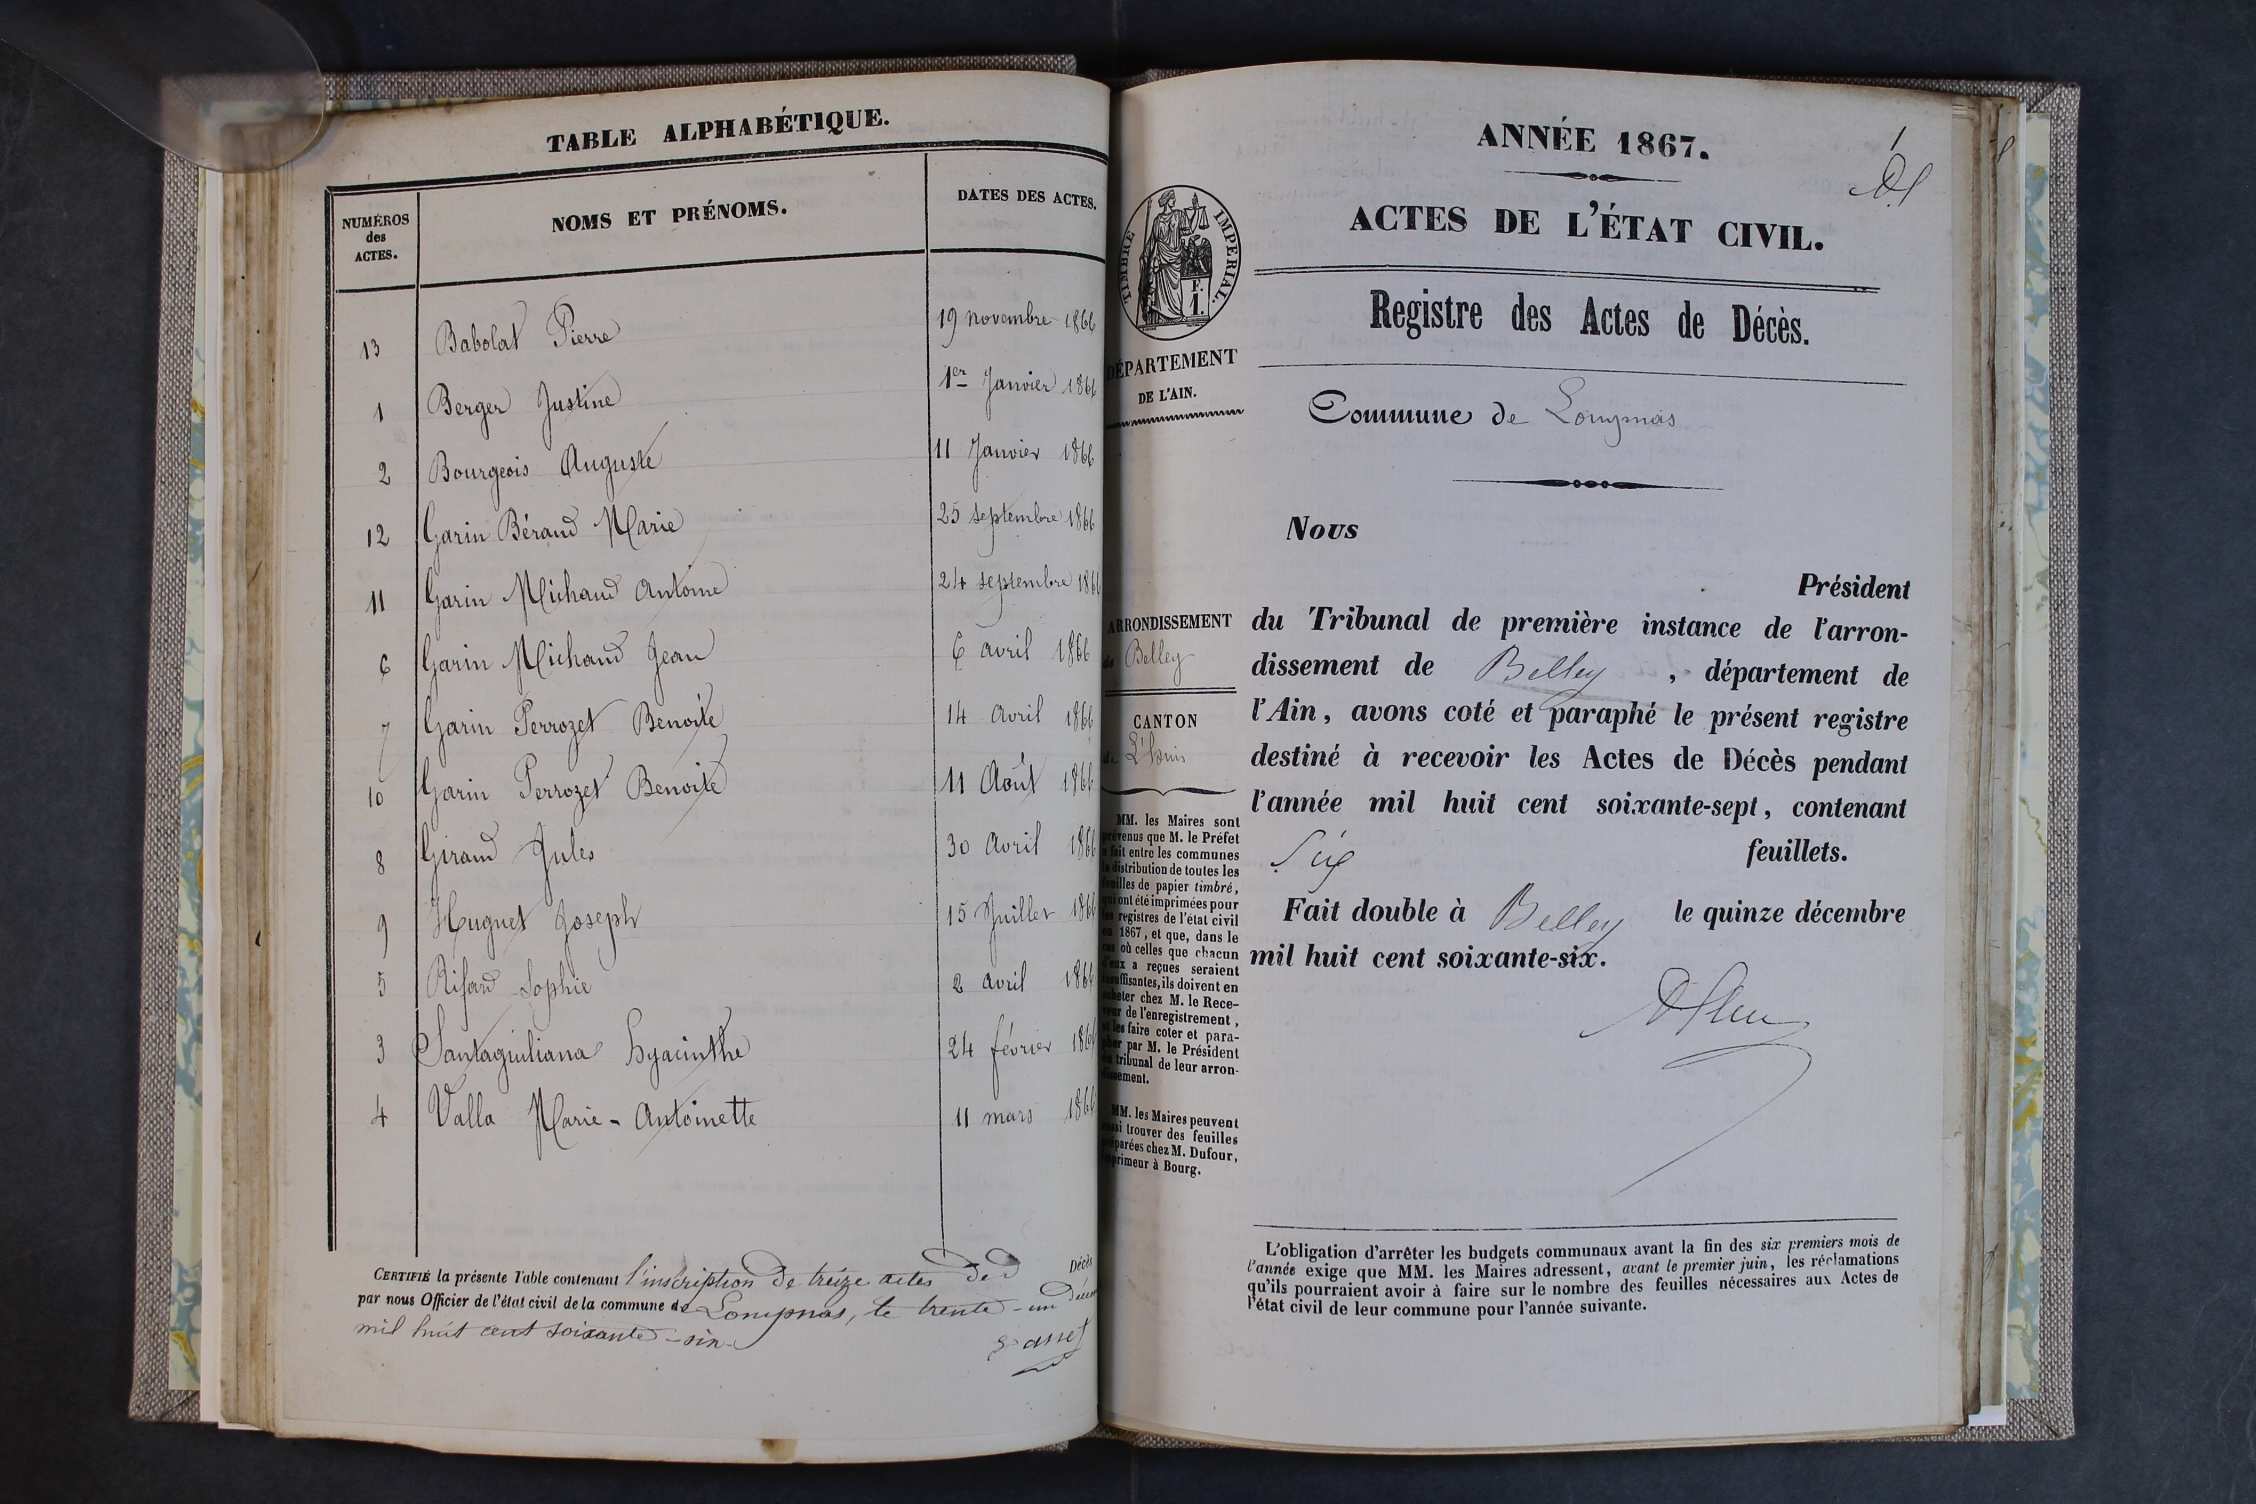 TABLE ALPHABÉTIQUE.
NUMÉROS
des
ACTES.
NOMS ET PRÉNOMS.
DATES DES ACTES.
13 Babolat Pierre 19 novembre 1866
1 Berger Justine 1er Janvier 1866
2 Bourgeois Auguste 11 Janvier 1866
12 Garin Béraud Marie 25 septembre 1866
11 Garin Michaud Antoine 24 septembre 1866
6 Garin Michaud Jean 6 avril 1866
7 Garin Perrozet Benoite 14 avril 1866
10 Garin Perrozet Benoite 11 Août 1866
8 Giraud Jules 30 Avril 1866
9 Huguet Joseph 15 Juillet 1866
5 Rifard Sophie 2 avril 1866
3 Santagiuliana Hyacinthe 24 février 1866
4 Valla Marie-Antoinette 11 mars 1866
CERTIFIÉ la présente Table contenant l'inscription de treize actes de Décès
par nous Officier de l'état civil de la commune de Lompnas, le trente-un
mil huit cent soixante-six.
1
ANNÉE 1867.
ACTES DE L'ÉTAT CIVIL.
Registre des Actes de Décès.
TIMBRE IMPÉRIAL.
F.
1.
DÉPARTEMENT
DE L'AIN.
Commune de Lompnas
ARRONDISSEMENT
de Belley
CANTON
de L'huis
MM. les Maires sont
prévenus que M. le Préfet
a fait entre les communes
la distribution de toutes les
feuilles de papier timbré,
qui ont été imprimées pour
les registres de l'état civil
en 1867, et que, dans le
cas où celles que chacun
d'eux a reçues seraient
insuffisantes, ils doivent en
acheter chez M. le Rece-
veur de l'enregistrement,
et les faire coter et para-
pher par M. le Président
du tribunal de leur arron-
dissement.
MM. les Maires peuvent
aussi trouver des feuilles
préparées chez M. Dufour,
imprimeur à Bourg.
Nous
Président
du Tribunal de première instance de l'arron-
dissement de Belley, département de
l'Ain, avons coté et paraphé le présent registre
destiné à recevoir les Actes de Décès pendant
l'année mil huit cent soixante-sept, contenant
Six feuillets.
Fait double à Belley le quinze décembre
mil huit cent soixante-six.
L'obligation d'arrêter les budgets communaux avant la fin des six premiers mois de
l'année exige que MM. les Maires adressent, avant le premier juin, les réclamations
qu'ils pourraient avoir à faire sur le nombre des feuilles nécessaires aux Actes de
l'état civil de leur commune pour l'année suivante.